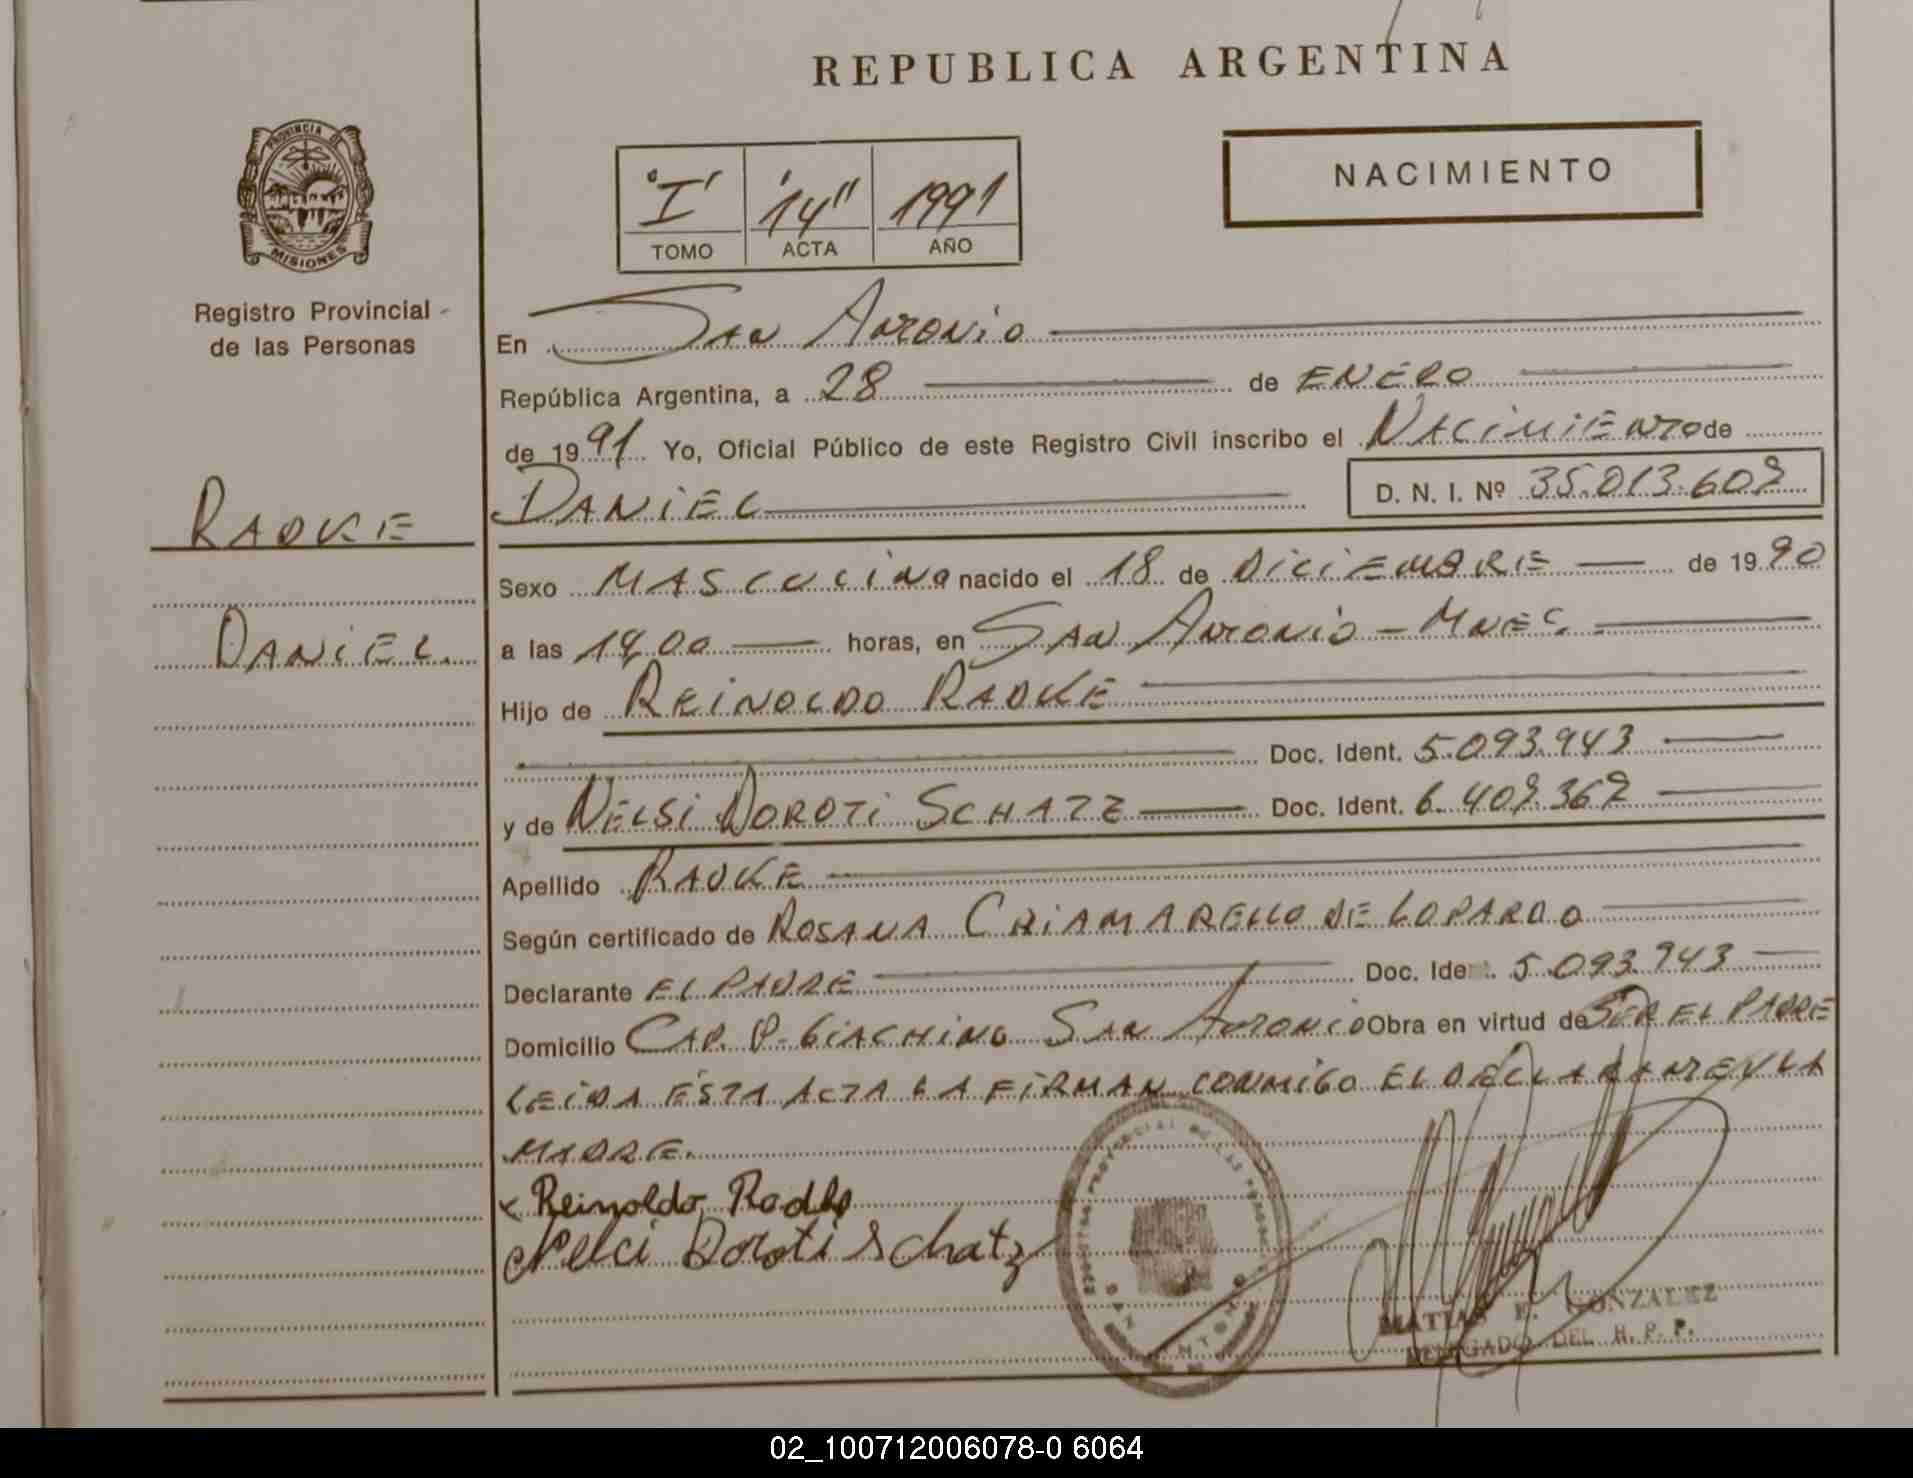 REPUBLICA ARGENTINA
PROVINCIA DE
MISIONES
Registro Provincial
de las Personas
"I" "14" 1991
TOMO ACTA AÑO
NACIMIENTO
En San Antonio
República Argentina, a 28 de ENERO
de 1991 Yo, Oficial Público de este Registro Civil inscribo el NACIMIENTO de
RADKE
DANIEL D. N. I. Nº 35.013.609
Sexo MASCULINO nacido el 18 de DICIEMBRE de 1990
DANIEL.
a las 19,00 horas, en SAN ANTONIO - MNES.
Hijo de REINOLDO RADKE
Doc. Ident. 5.093.943
y de NELSI DOROTI SCHATZ Doc. Ident. 6.409.369
Apellido RADKE
Según certificado de ROSANA CHIAMARELLO DE LOPARDO
Declarante EL PADRE Doc. Ident. 5.093.943
Domicilio CAP. P. GIACHINO SAN ANTONIO Obra en virtud de SER EL PADRE
LEIDA ESTA ACTA LA FIRMAN CONMIGO EL DECLARANTE Y LA
MADRE.
x Reinoldo Radke
Nelci Doroti Schatz
REGISTRO PROVINCIAL DE LAS PERSONAS
SAN ANTONIO
MATIAS E. GONZALEZ
DELEGADO DEL R. P. P.
02_100712006078-0 6064